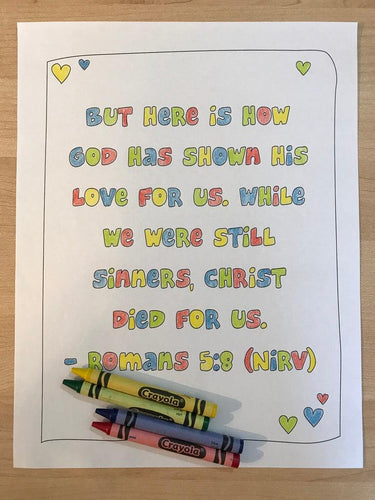 BUT HERE IS HOW
GOD HAS SHOWN HIS
LOVE FOR US. WHILE
WE WERE STILL
SINNERS, CHRIST
DIED FOR US.
- ROMANS 5:8 (NIRV)
Crayola
Crayola